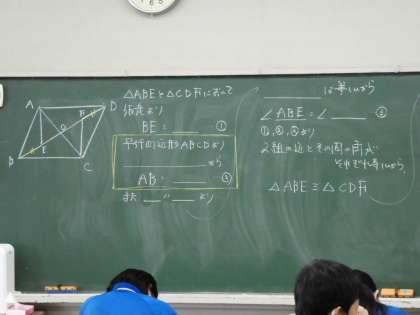 A
D
F
O
E
B
C
△ABEと△CDFにおいて
仮定より
BE = ____ ①
平行四辺形ABCDより
____から
AB = ____ ②
また ____ // ____ より
____は等しいから
∠ABE = ∠____ ③
①,②,③より
2組の辺とその間の角が
それぞれ等しいから
△ABE ≡ △CDF